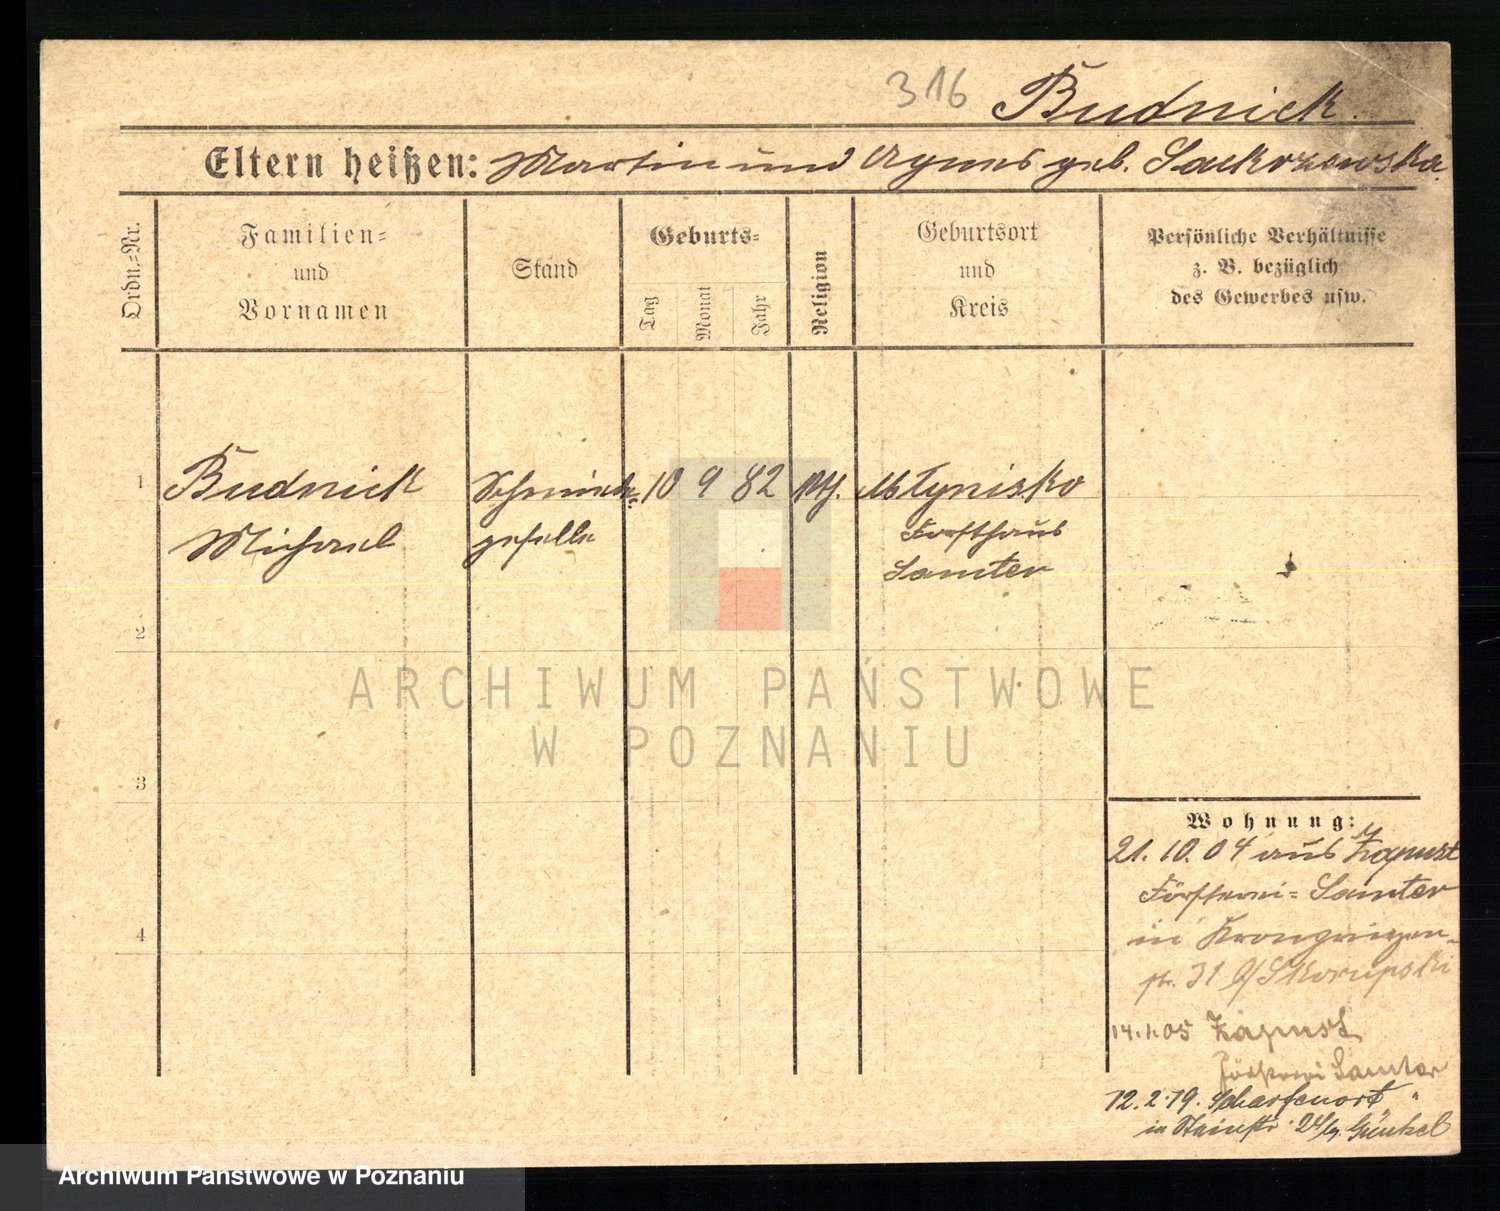 316 Budnick.
Eltern heißen: Martin und Agnes geb. Sackrzewska.
Ordn.-Nr.
Familien-
und
Vornamen
Stand
Geburts-
Tag
Monat
Jahr
Religion
Geburtsort
und
Kreis
Persönliche Verhältnisse
z. B. bezüglich
des Gewerbes usw.
1 Budnick Schmiede- 10 9 82 kth. Młynisko
Michael geselle Forsthaus
Samter
2
3
4
ARCHIWUM PAŃSTWOWE
W POZNANIU
Wohnung:
21.10.04 aus Zapust
Försterei- Samter
in Kronprinzen-
str. 31 b/Skorupski
14.1.05 Zapust
Försterei Samter
12.2.19. Scharfenort "
in Steinstr. 24 Günkel
Archiwum Państwowe w Poznaniu